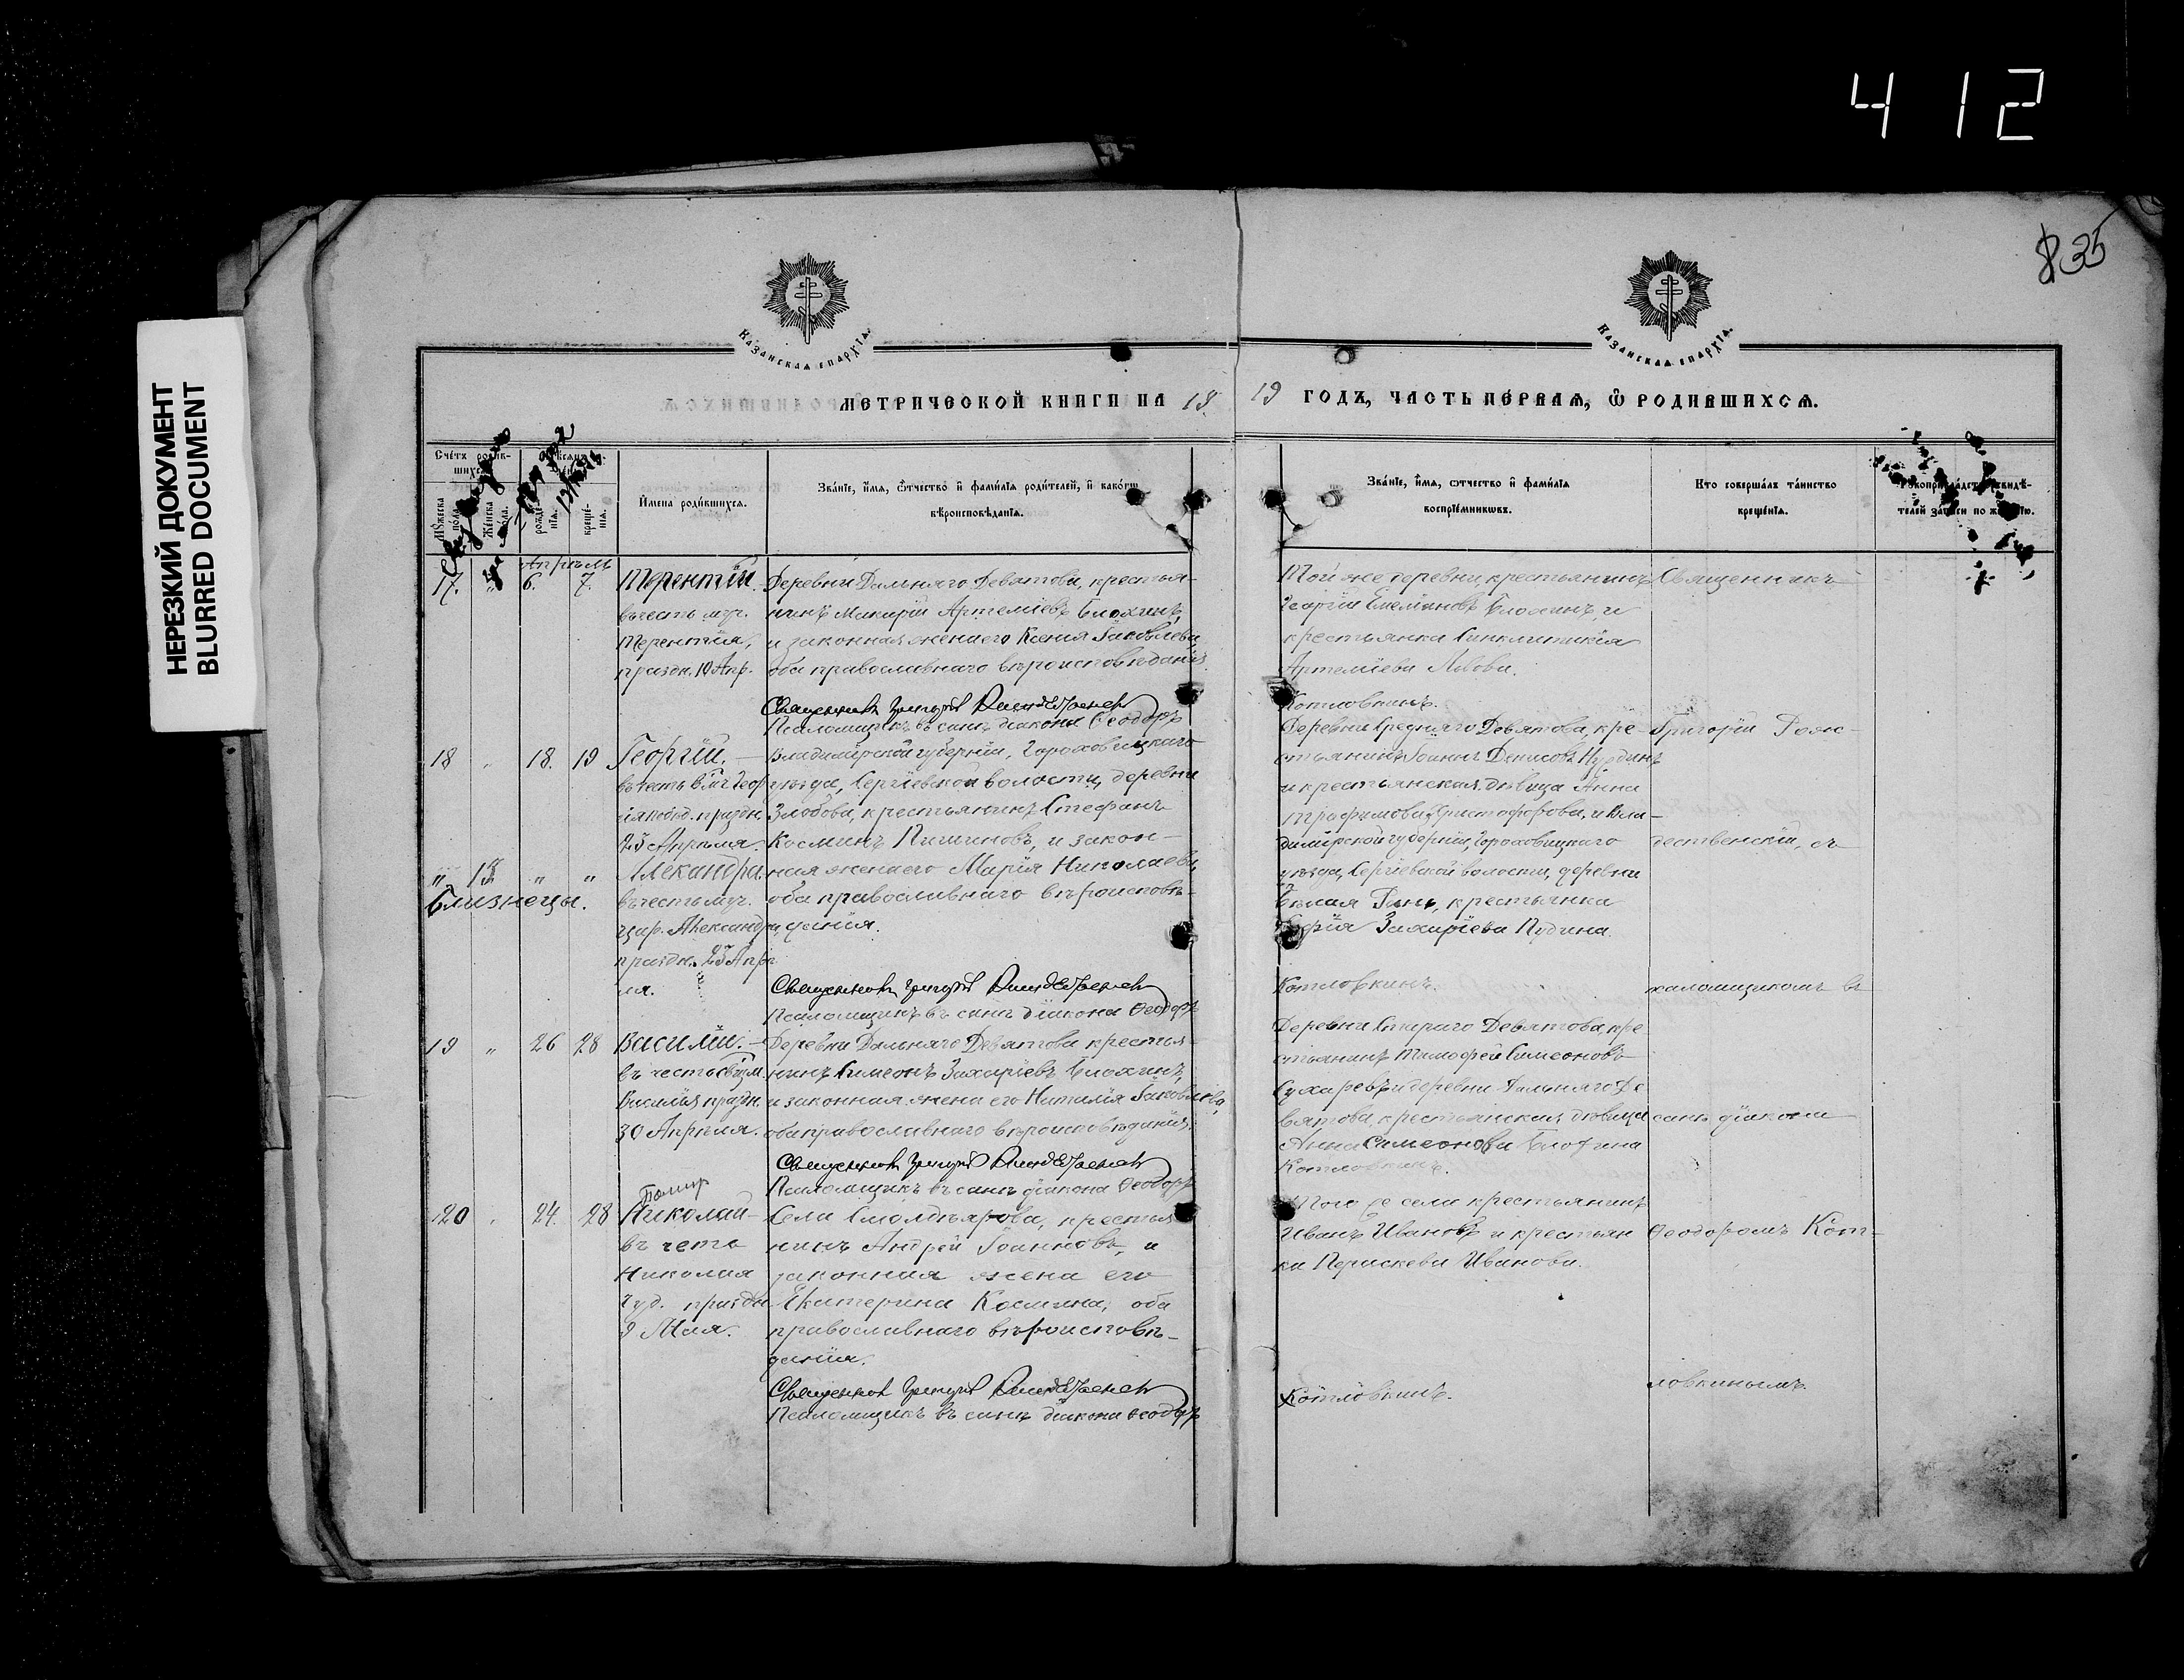 4 12
835
НЕРЕЗКИЙ ДОКУМЕНТ
BLURRED DOCUMENT
КАЗАНСКАЯ ЕПАРХІА.
КАЗАНСКАЯ ЕПАРХІА.
МЕТРИЧЕСКОЙ КНИГИ НА 18
19 ГОДЪ, ЧАСТЬ ПЕРВАЯ, Ѡ РОДИВШИХСЯ.
Счетъ родив-
шихся
Мужеска пола.
Женска пола.
рожде-
нія.
креще-
нія.
Имена родившихся.
Званіе, имя, отчество и фамилія родителей, и какогѡ
вѣроисповѣданія.
Званіе, имя, отчество и фамилія
воспріемниковъ.
Кто совершалъ таинство
крещенія.
Рукоприкладство свидѣ-
телей записи по желанію.
Апрѣль
17. " 6. 7. Терентій.
въ честь муч.
Терентія,
праздн. 10 Апр.
Деревни Дальняго Девятова, крестья-
нинъ Макарій Артеміевъ Блохинъ,
и законная жена его Ксенія Іаковлева,
оба православнаго вѣроисповѣданія.
Священникъ Григорій Рождественскій
Псаломщикъ въ санѣ діакона Ѳеодоръ
Той же деревни, крестьянинъ
Георгій Емеліановъ Блохинъ, и
крестьянка Синклитикія
Артеміева Львова.
Котловкинъ.
Священникъ
18 " 18. 19 Георгій.
въ честь Вмч Геор
гія побѣд. праздн.
23 Апрѣля.
Владимірской губерніи, Гороховецкаго
уѣзда, Сергіевской волости, деревни
Злобова, крестьянинъ Стефанъ
Косминъ Пишиновъ, и закон-
" 13 " " Алекандра.
Близнецы.
въ честь муч.
цар. Александры,
праздн. 23 Апрѣ
ля.
ная жена его Марія Николаева,
оба православнаго вѣроисповѣ-
данія.
Священникъ Григорій Рождественскій
Псаломщикъ въ санѣ діакона Ѳеодоръ
Деревни Средняго Девятова, кре-
стьянинъ Іоаннъ Денисовъ Нурдинъ
и крестьянская дѣвица Анна
Трофимова Христофорова, и Вла-
димірской губерніи, Гороховецкаго
уѣзда, Сергіевской волости, деревни
Бѣлая Рамь, крестьянка
Марія Захаріева Пудина.
Котловкинъ.
Григорій Рож-
дественскій, съ
псаломщикомъ въ
19 " 26 28 Василій.
въ честь свщм.
Василія праздн.
30 Апрѣля.
Деревни Дальняго Девятова крестья-
нинъ Симеонъ Захаріевъ Блохинъ
и законная жена его Наталія Іаковлева,
оба православнаго вѣроисповѣданія.
Священникъ Григорій Рождественскій
Псаломщикъ въ санѣ діакона Ѳеодоръ
Деревни Стараго Девятова, кре
стьянинъ Тимофей Симеоновъ
Сухаревъ и деревни Дальняго Де
вятова, крестьянская дѣвица
Анна Симеонова Блохина
Котловкинъ.
санѣ діакона
Помир
20 " 24. 28 Николай
въ честь
Николая
Чуд. праздн
9 Мая.
Села Смолдѣярова, крестья
нинъ Андрей Іоанновъ, и
законная жена его
Екатерина Космина, оба
православнаго вѣроисповѣ-
данія.
Священникъ Григорій Рождественскій
Псаломщикъ въ санѣ діакона Ѳеодоръ
Того же села крестьянинъ
Иванъ Ивановъ и крестьян
ка Параскева Иванова.
Котловкинъ.
Ѳеодоромъ Кот-
ловкинымъ.